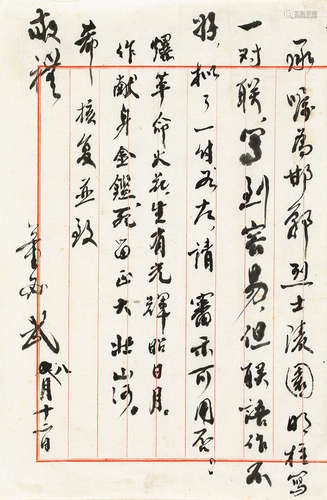 承嘱为邯郸烈士陵园明柱写
一对联，写到容易，但联语作不
好，拟了一付如左，请审示可用否。
爆革命火花，生有光辉昭日月。
作献身金鑑，死留正大壮山河。
希核复，並致
敬礼
董必武
八月十二日